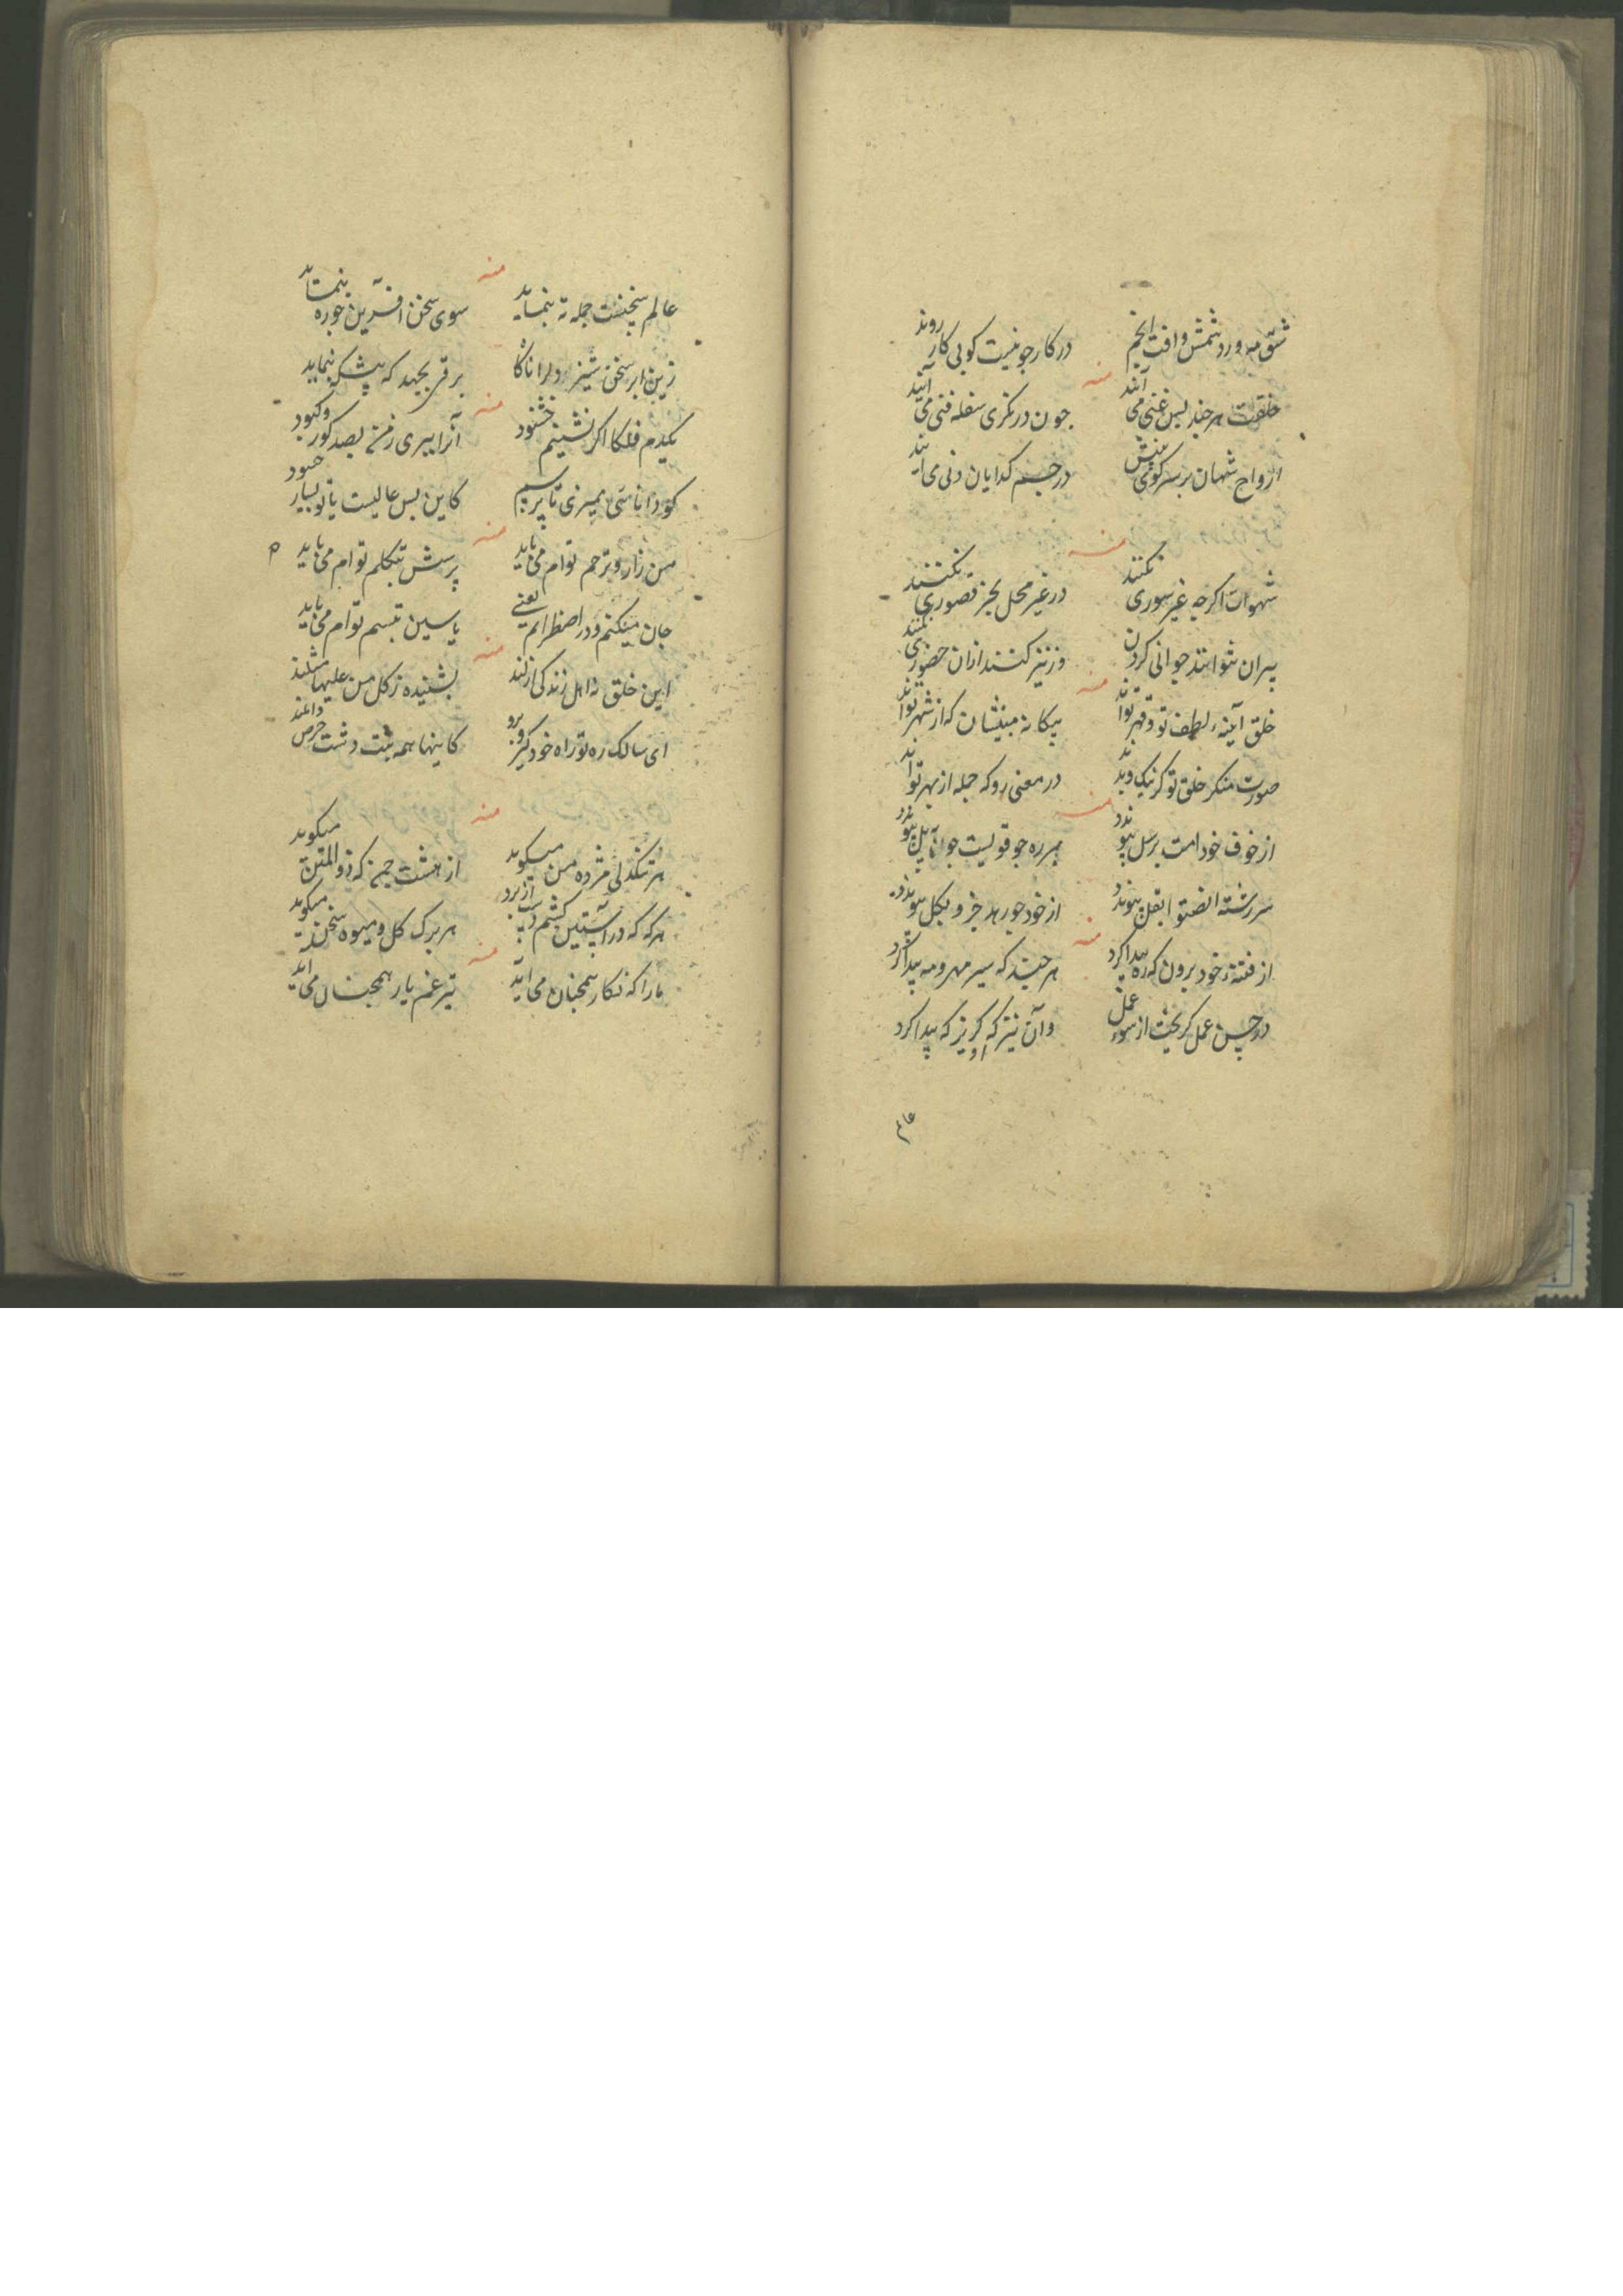 شق مه و رد شمس و افت انجم
در کار چو نیست کو بی کار روند
منه
خلقت هر چند بس غنی می آیند
چون در نکری سفله فنی می آیند
ارواح شهان بر سر کوی
در جسم کدایان دنی می آیند
منه
شهوات اکرچه غیر سوری نکنند
در غیر محل بجز قصوری نکنند
پیران نتوانند جوانی کردن
ور نیز کنند ازان حضوری نکنند
منه
خلق آینهٔ لطف تو و قهر تواند
بیکانه مبینشان که از شهر تواند
صورت منکر خلق تو کر نیک و بدند
در معنی رو که جمله از بهر تواند
منه
از خوف خودامت برسل پیوندد
سررشته انصتوا بقل پیوندد
از خود چو رهد جزو بکل پیوندد
منه
از فتنهٔ خود برون که ره پیدا کرد
هر چند که سیر مهر و مه پیدا کرد
در حسن عمل کریخت از سوء عمل
وآن نیز که کریز که پیدا کرد
عالم
منه
عالم سخنست جمله ته بنماید
سوی سخن آفرین چو ره بنماید
زین ابر سخن نیز دلرا ناکاه
برقی بجهد که بنماید
منه
یکدم فلکا اکر نشینم خشنود
آنرا ببری ز من بصد کور و کبود
کو دانائی ممیزی تا پرسیم
کاین بس عالیست یا تو بسیار حسود
منه
من زار و ترحم توام می باید
پرسش تکلم توام می باید
جان میکنم و در اضطرابم یعنی
یاسین تبسم توام می باید
منه
این خلق نه اهل زندکی ارزند
بشنیده ز کل من علیها مثلند
ای سالک ره تو راه خود کیر و برو
کاینها همه دشت حرص
منه
هر تنکدلی مژده من میکوید
از هشت چمن که ذو المنن میکوید
هر که که در آستین کشم دست از برد
هر برک کل و میوه سخن میکوید
منه
ما را که نکار همچنان می آید
تیر غم یار همچنان می آید